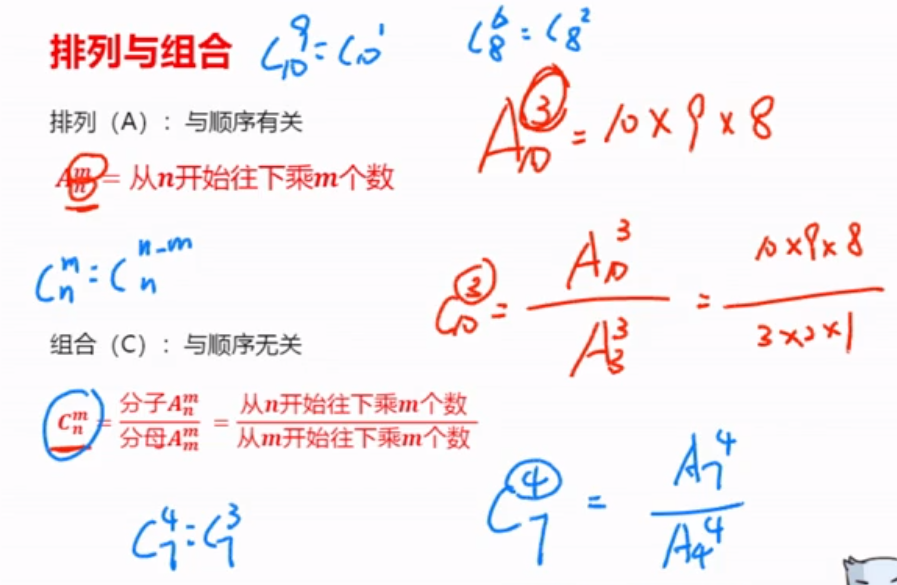 排列与组合
C₁₀⁹ = C₁₀¹
C₈⁶ = C₈²
排列（A）：与顺序有关
A₁₀³ = 10×9×8
Aₙᵐ = 从n开始往下乘m个数
Cₙᵐ = Cₙⁿ⁻ᵐ
C₁₀³ = A₁₀³ / A₃³ = 10×9×8 / 3×2×1
组合（C）：与顺序无关
Cₙᵐ = 分子Aₙᵐ / 分母Aₘᵐ = 从n开始往下乘m个数 / 从m开始往下乘m个数
C₇⁴ = A₇⁴ / A₄⁴
C₇⁴ = C₇³